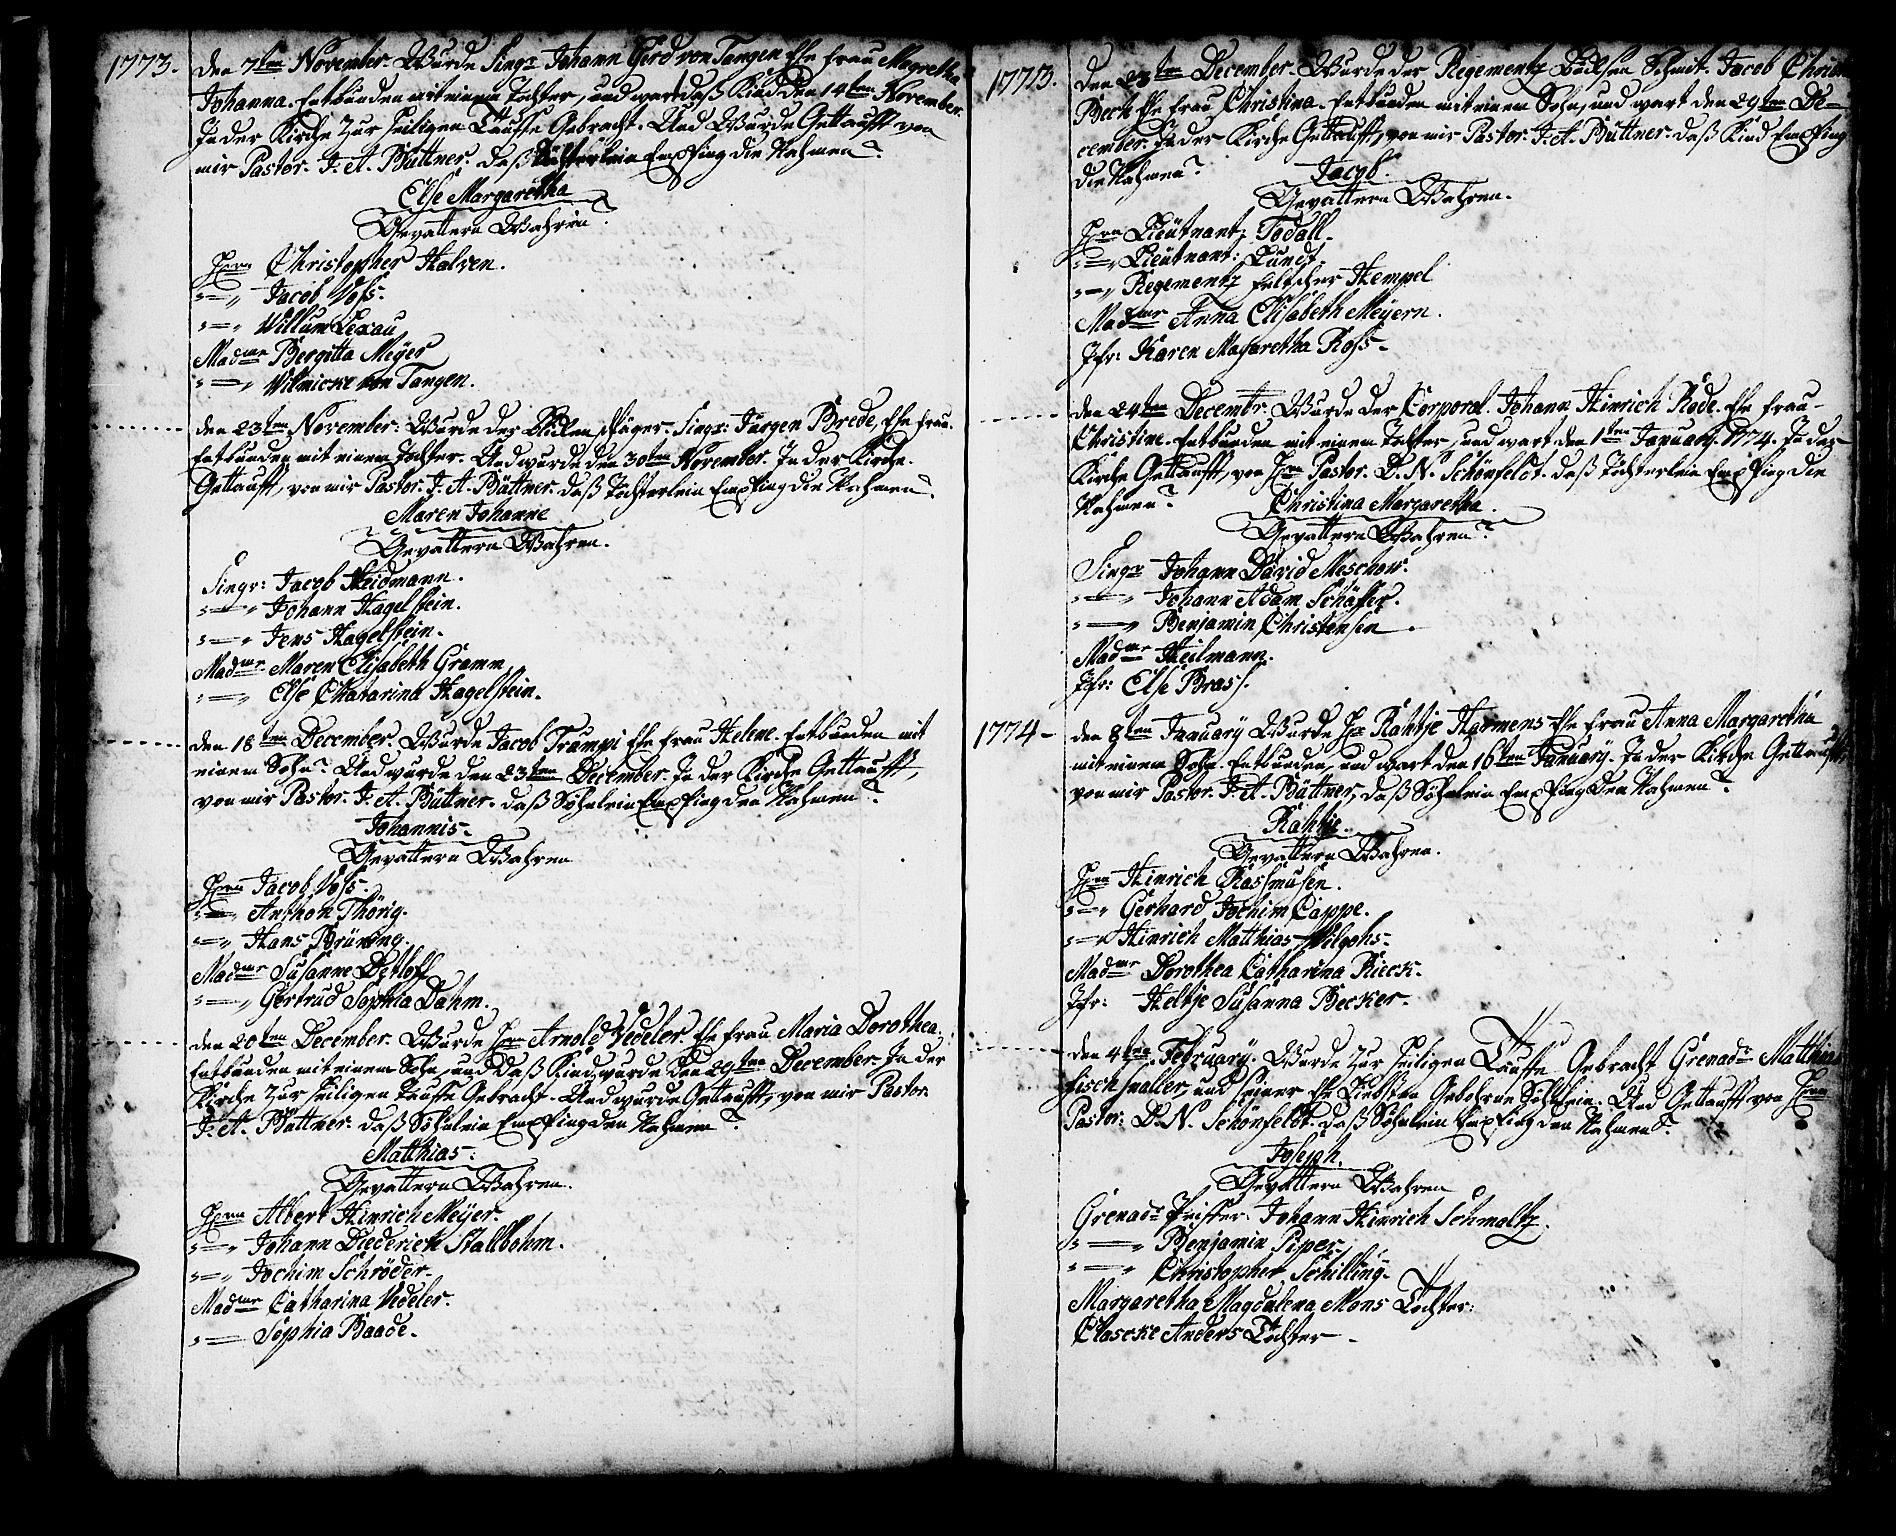 1773. Den 7ten November. Wurde Singr Johann Gerd von Tangen Ehe Frau Magretha
Johanna. Entbunden mit einem Tochter, und wart daß Kind den 14ten November.
In der Kirche zur Heiligen Tauffe Gebracht. Und Wurde Gettaufft von
mir Pastor. J. A. Büttner. Daß Töchterlein Empfing die Nahmen.
Else Margaretha
Gevattern Wahren
Hrrn Christopher Halven.
Jacob Voss.
Willum Lexau
Madme Bergitta Meyer
Wilmicke von Tangen.
Den 23ten November. Wurde der Singr: Jürgen Brede, Ehe Frau.
Entbunden mit einem Tochter. Und wurde den 30ten November. In der Kirche.
Gettaufft, von mir Pastor. J. A. Büttner. Daß Töchterlein Empfing die Nahmen.
Maren Johanne
Gevattern Wahren.
Singr: Jacob Heidmann.
Johann Hagelstein.
Jens Hagelstein.
Madme Maren Elisabeth Gramm
Else Chatarina Hagelstein.
Den 18ten December. Wurde Jacob Trümpi Ehe Frau Helene. Entbunden mit
einem Sohn. Und wurde den 23ten December. In der Kirche Gettaufft,
von mir Pastor. J. A. Büttner. Daß Söhnlein Empfing den Nahmen.
Johannis.
Gevattern Wahren
Hrrn Jacob Voss.
Anthon Thörig.
Hans Brüning.
Madme Susanne Detloff
Gertrud Sophia Dahm.
Den 20ten December. Wurde Hrr Arnold Vedeler. Ehe Frau Maria Dorothea.
Entbunden mit einem Sohn, und Daß Kind wurde den 29ten December. In der
Kirche zur Heiligen Tauffe Gebracht. Und wurde Gettaufft, von mir Pastor.
J. A. Büttner. Daß Söhnlein Empfing den Nahmen.
Matthias.
Gevattern Wahren.
Hrrn Albert Hinrich Meyer.
Johann Diederich Stallbohm.
Jochim Schröder.
Madme Catharina Vedeler.
Sophia Baade.
1773. Den 23ten December. Wurde der Regementz Büchsen Schmit. Jacob Christ
Bech Ehe Frau Christina. Entbunden mit einem Sohn, und wart den 29ten De-
cember. In der Kirche Gettaufft, von mir Pastor. J. A. Büttner. Daß Kind Empfing
die Nahmen. Jacob.
Gevattern Wahren.
Hrrn Lieütnant: Todall.
Lieütnant: Lundt.
Regementz Feltscher Hempel
Madme Anna Elisabeth Meyern.
Jfr: Karen Magaretha Ross.
Den 24ten Decembr. Wurde der Corporal. Johann Hinrich Rode. Ehe Frau
Christine. Entbunden mit einem Tochter, und wart den 1ten January. 1774. In der
Kirche Gettaufft, von Hrrn Pastor. D. N. Schönfeldt. Daß Töchterlein Empfing die
Nahmen. Christina Margaretha.
Gevattern Wahren.
Singr Johann David Meschow.
Johann Adam Schäffer.
Benjamin Christensen.
Madme Heilmann.
Jfr: Else Brass.
1774. Den 8ten January Wurde Hr Rahtje Harmens Ehe Frau Anna Margaretha
mit einem Sohn. Entbunden, und wart den 16ten January. In der Kirche Gettaufft,
von mir Pastor. J. A. Büttner, daß Söhnlein Empfing Den Nahmen.
Rahtje.
Gevattern Wahren.
Hrrn Hinrich Rassmüsen.
Gerhard Jochim Cappe.
Hinrich Matthias Wilgohs.
Madme Dorothea Catharina Rieck.
Jfr: Heltje Susanna Becker.
Den 4ten February. Wurde zur Heiligen Tauffe Gebracht Grenadr. Matthias
Fischhaller, und Seiner Ehe Liebsten Gebohrne Söhnlein. Und Gettaufft von Hrrn
Pastor: D. N. Schönfeldt. Daß Söhnlein Empfing den Nahmen.
Joseph.
Gevattern Wahren
Grenadr Pfeiffer. Johann Hinrich Schmaltz.
Benjamin Piper.
Christopher Schilling.
Margaretha Magdalena Mons Tochter:
Clascke Anders Tochter.